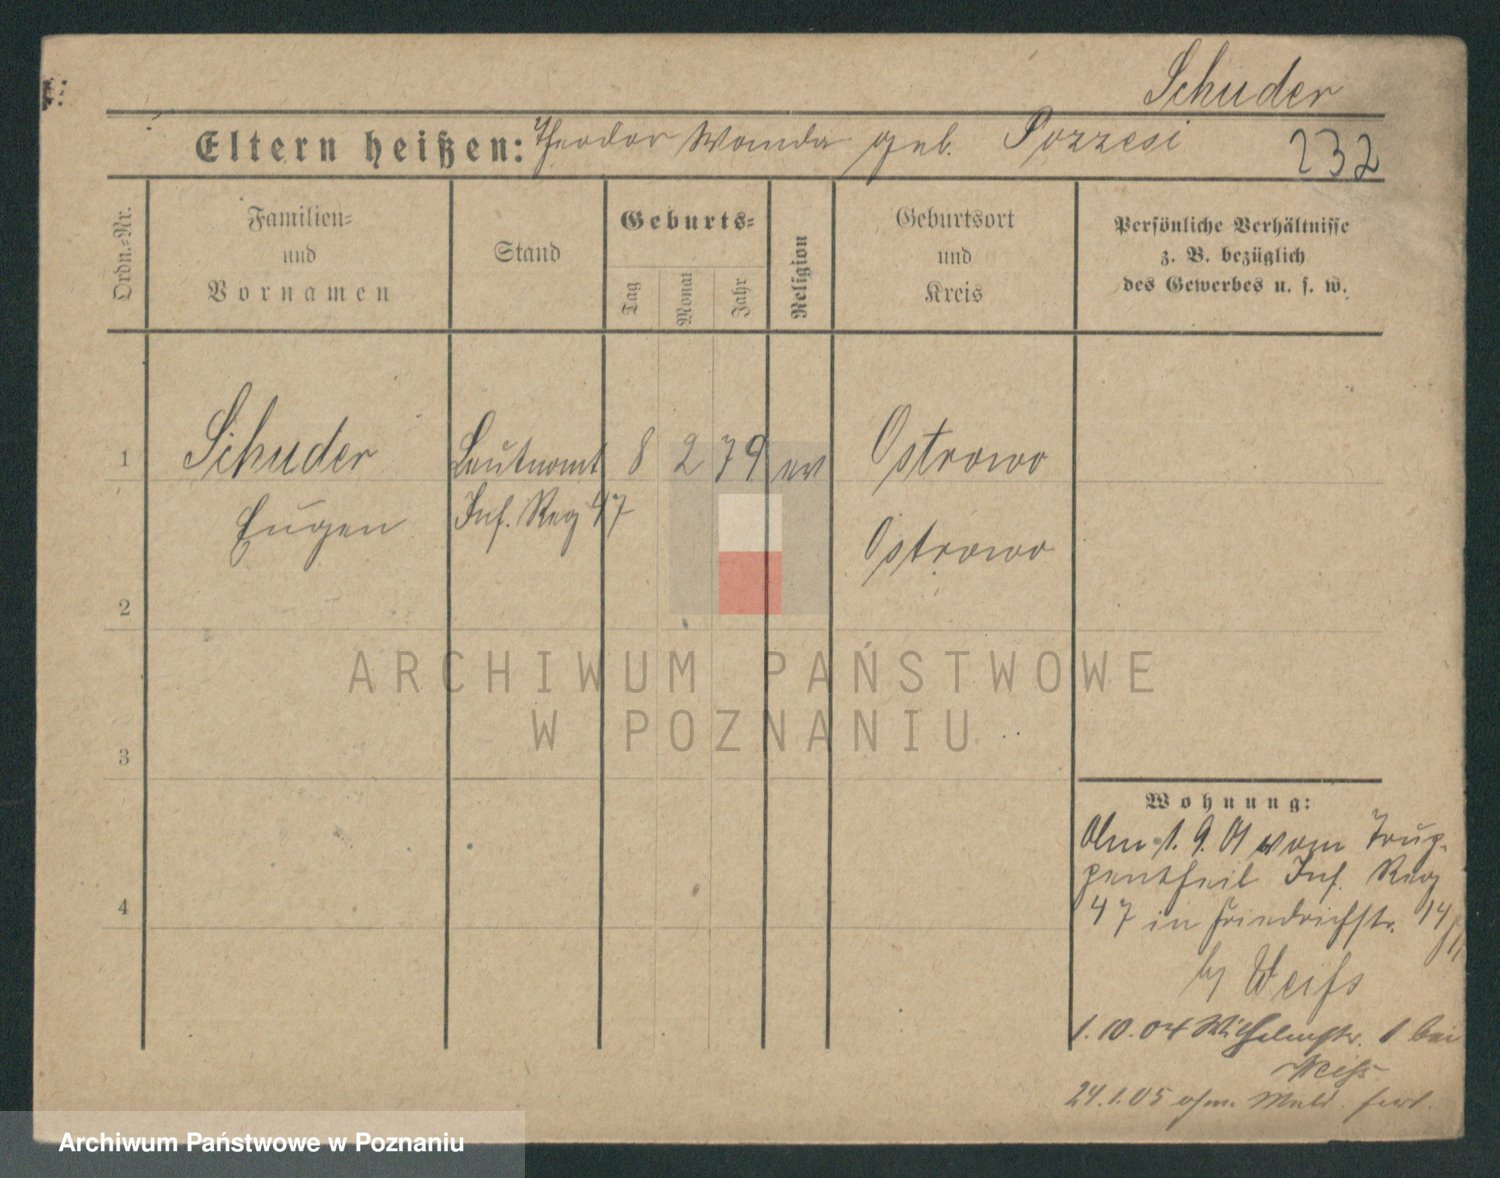 Schuder
Eltern heißen: Theodor Wanda geb. Pozzesi
232
Ordn.=Nr.
Familien=
und
Vornamen
Stand
Geburts=
Tag
Monat
Jahr
Religion
Geburtsort
und
Kreis
Persönliche Verhältnisse
z. B. bezüglich
des Gewerbes u. s. w.
1
Schuder
Eugen
Leutnamt
Inf. Reg 47
8 2 79 ev
Ostrowo
Ostrowo
2
3
4
ARCHIWUM PAŃSTWOWE
W POZNANIU
Wohnung:
Am 1. 9. 01 vom Trup-
pentheil Inf. Reg
47 in Friedrichstr. 14
by Weiß
1. 10. 04 Wilhelmstr. 1 bei
Weiß
24. 1. 05 ohne Meld. fort.
Archiwum Państwowe w Poznaniu